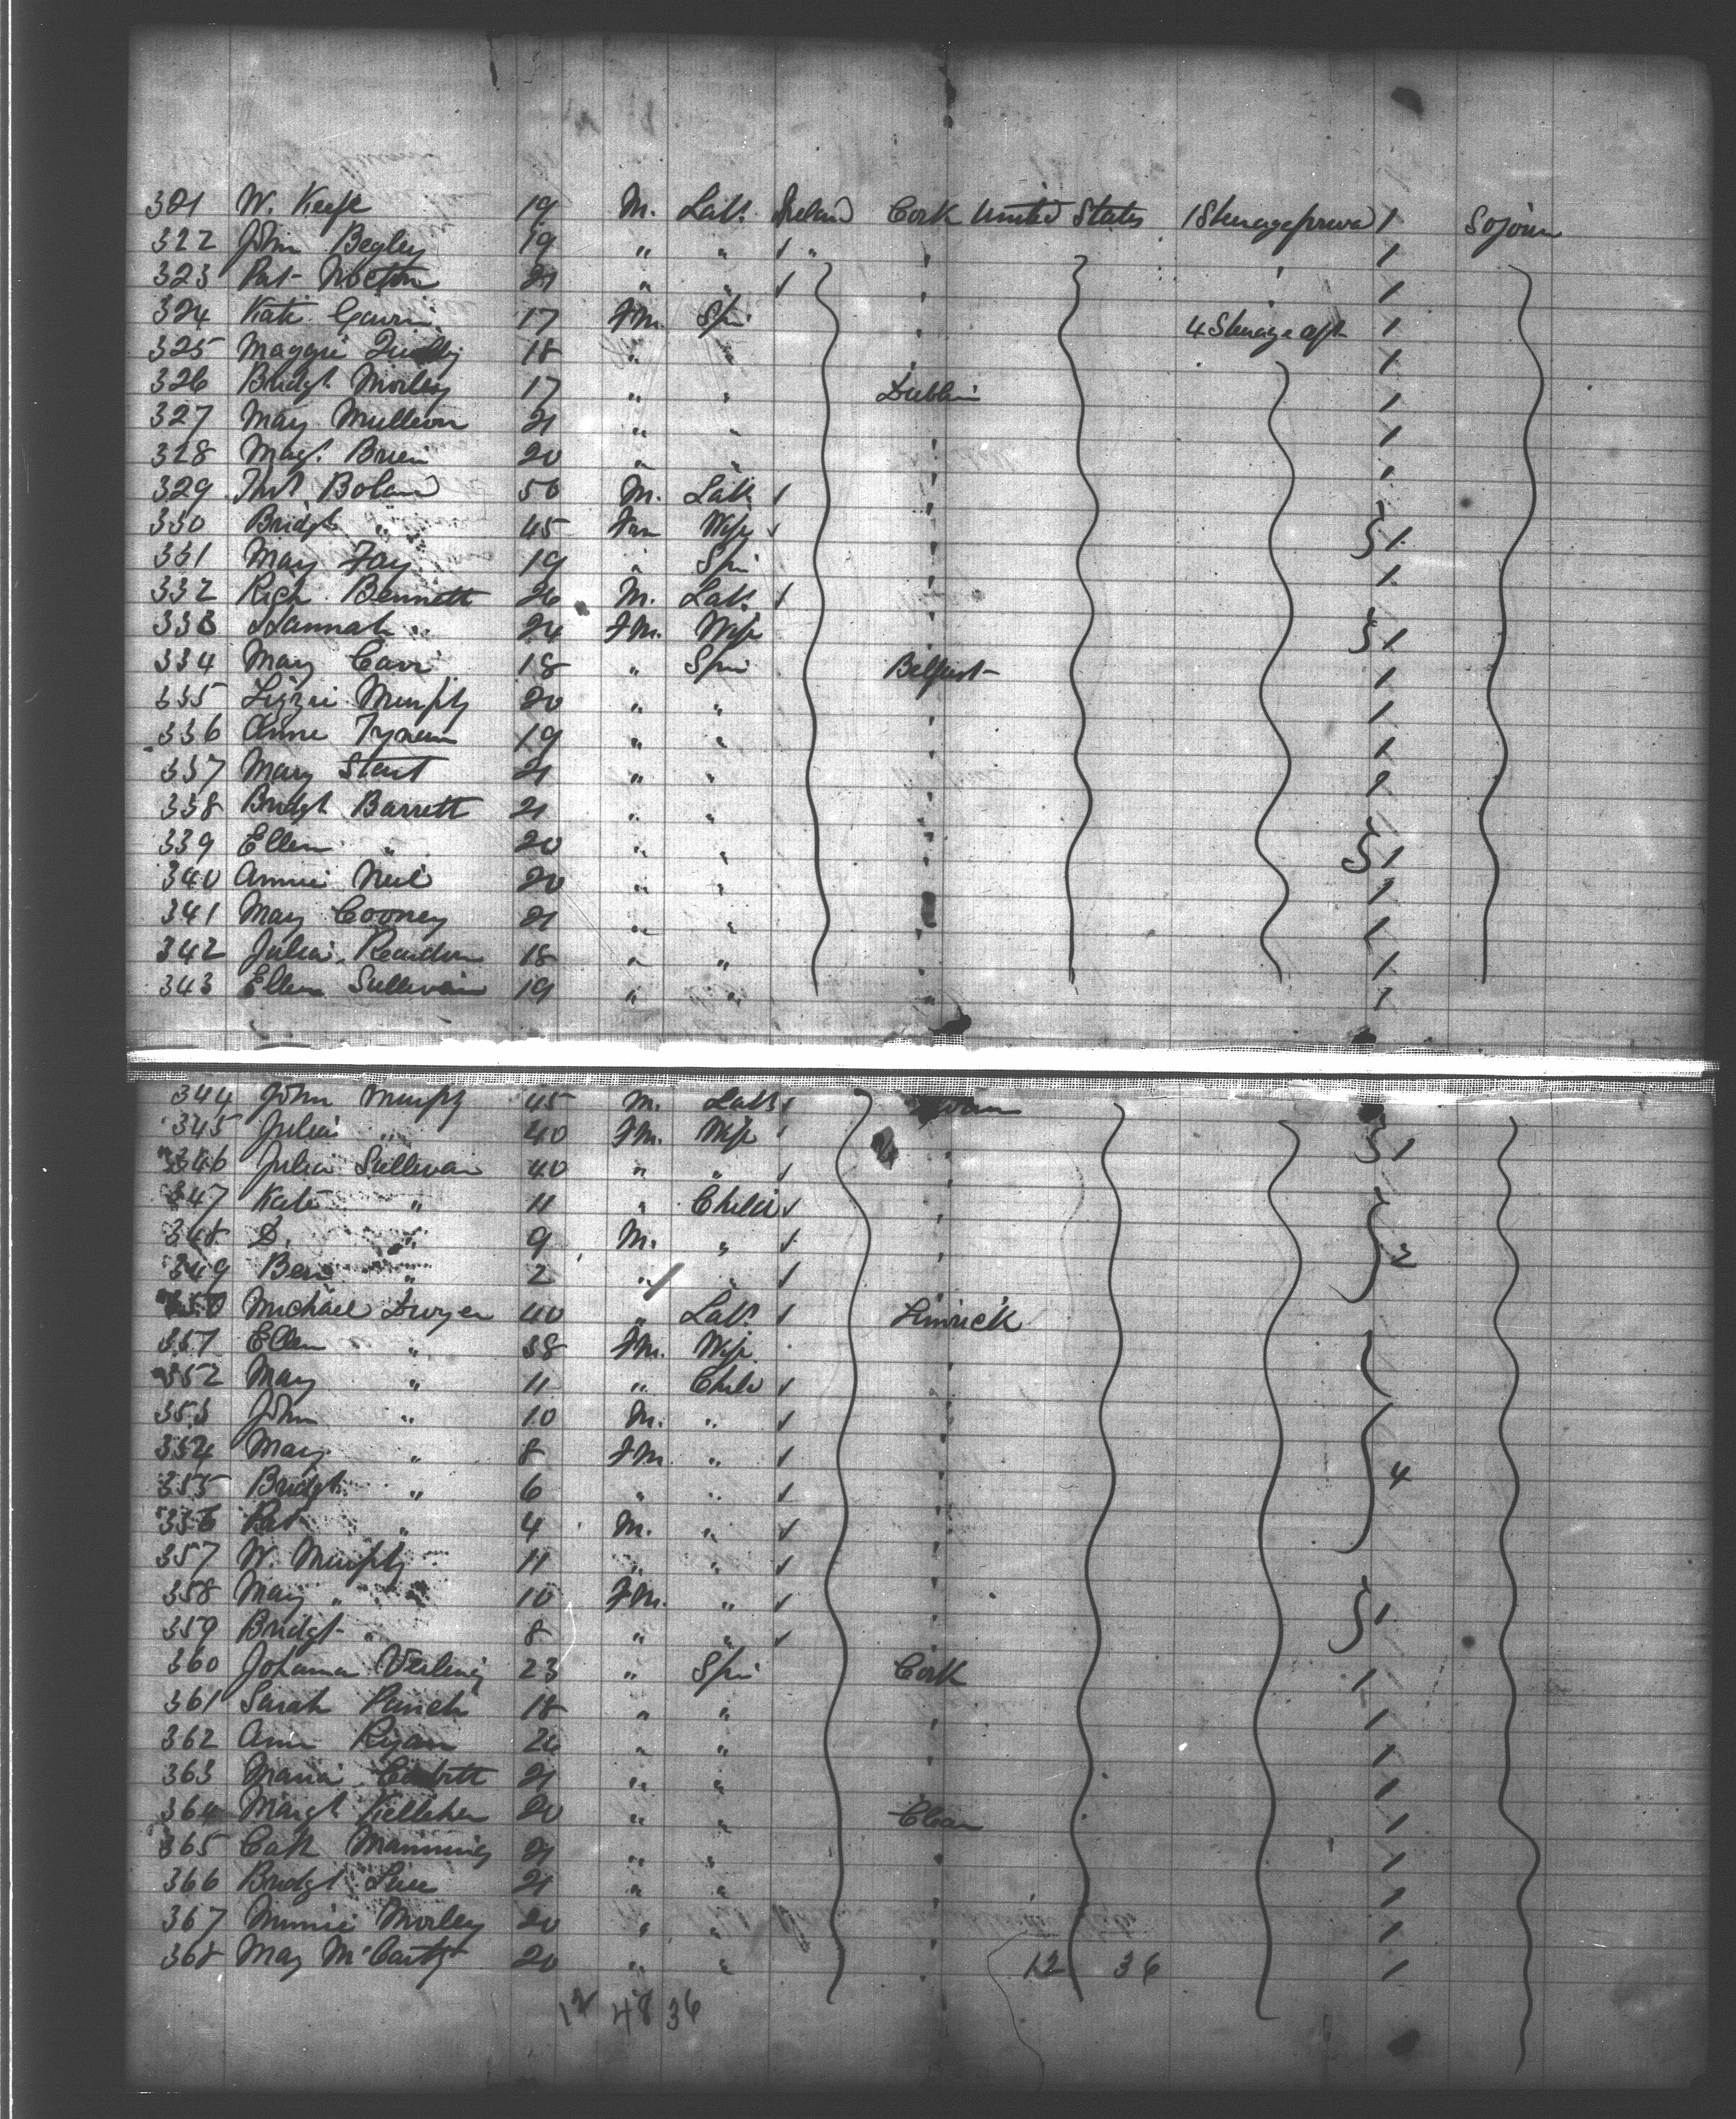 321 W. Keefe 19 M. Lab. Ireland Cork United States 1 Steerage forward 1 Sojourn
322 John Begley 19 " " " 1
323 Pat 21 " " 1
324 Kate 17 Fm. Spin 4 Steerage aft 1
325 Maggie 18 " " 1
326 Bridgt Morley 17 " " Dublin 1
327 May 21 " " 1
328 Magt. Brien 20 " " 1
329 Boland 50 M. Lab
330 Bridgt " 45 Fm Wife 1
331 May Fay 19 " Spin 1
332 Rich Bennett 26 M. Lab.
333 Hannah " 24 Fm. Wife 1
334 May Carr 18 " Spin Belfast 1
335 Lizzie Murphy 20 " " 1
336 Anne 19 " " 1
337 Mary 21 " " 1
338 Bridgt Barrett 21 " "
339 Ellen " 20 " " 1
340 Annie Neil 20 " " 1
341 May Cooney 21 " " 1
342 Julia Reardon 18 " " 1
343 Ellen Sullivan 19 " " 1
344 John Murphy 45 M. Lab
345 Julia " 40 Fm. Wife 1
346 Julia Sullivan 40 " "
347 Kate " 11 " Child
348 D. " 9 M. " 2
349 Ben " 2 " "
350 Michael Dwyer 40 " Lab. Limrick
351 Ellen " 38 Fm. Wife
352 May " 11 " Child
353 John " 10 M. "
354 May " 8 Fm. "
355 Bridgt " 6 " " 4
356 Pat " 4 M. "
357 W. Murphy 11 " "
358 May " 10 Fm. " 1
359 Bridgt " 8 " "
360 Johanna Verling 23 " Spin Cork 1
361 Sarah 18 " " 1
362 Ann Ryan 1
363 Maria 21 " " 1
364 Margt Kelleher 20 " " Clare 1
365 Cath Manning 21 " " 1
366 Bridgt 21 " " 1
367 Minnie Morley 20 " " 1
368 May McCarthy 20 " " 12 36 1
12 48 36